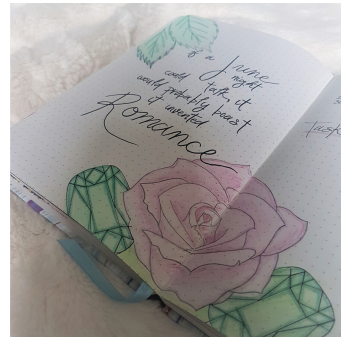 if a June
night
could talk, it
would probably boast
it invented
Romance
Task